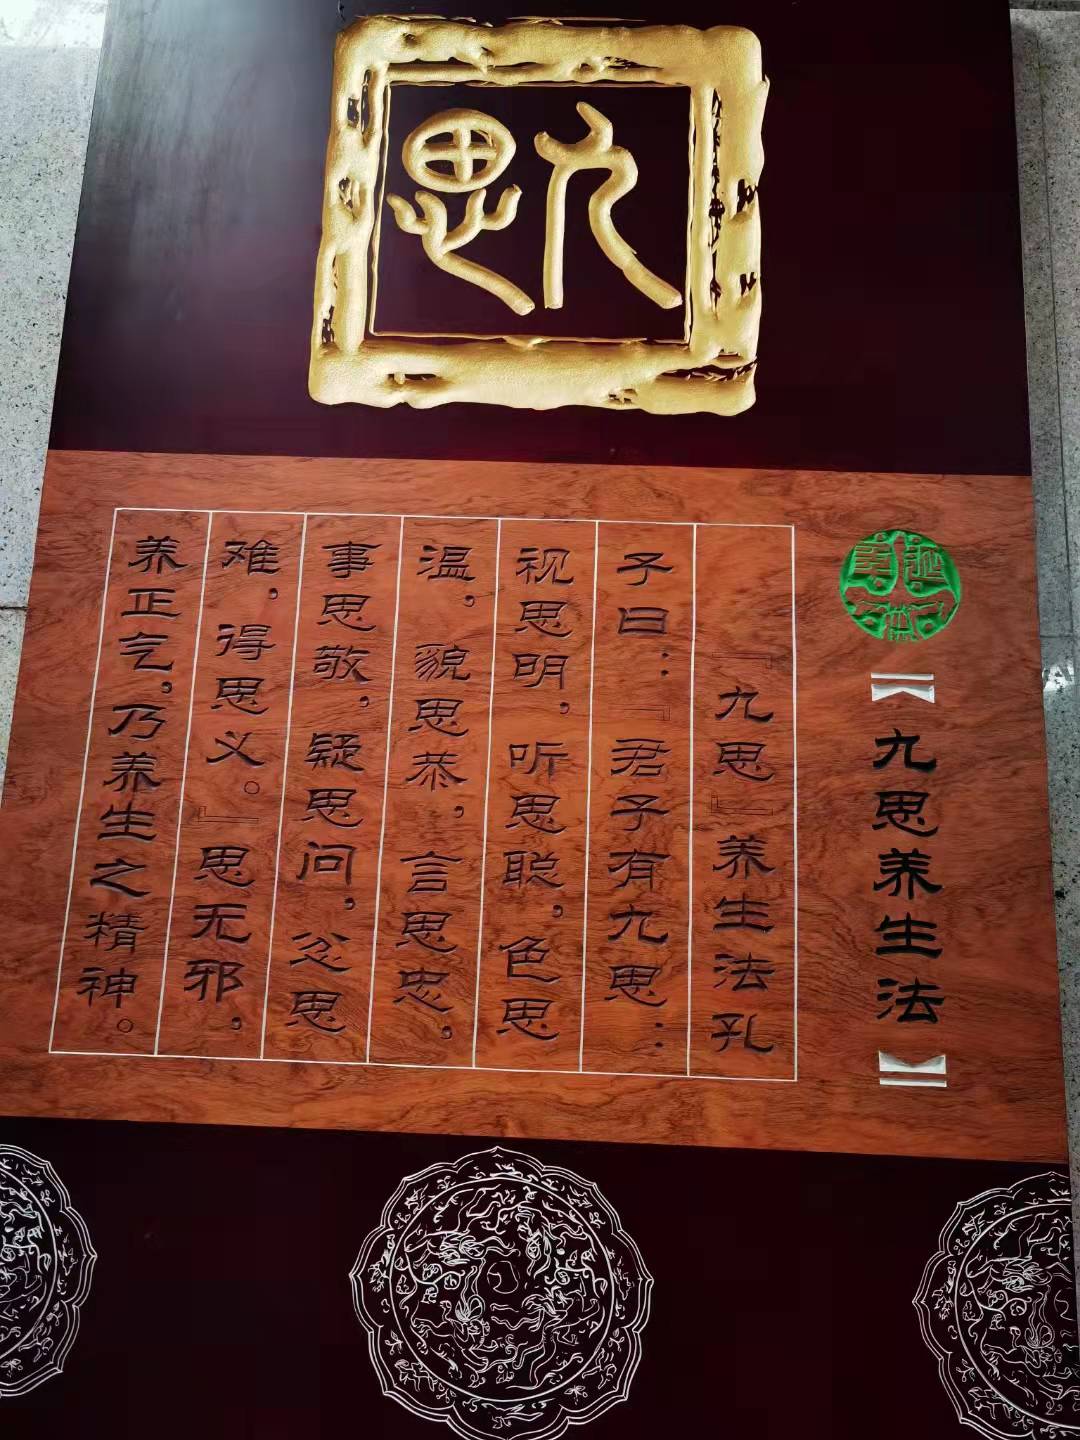 九思
【九思养生法】
『九思』养生法孔
子曰：『君子有九思：
视思明，听思聪，色思
温，貌思恭，言思忠，
事思敬，疑思问，忿思
难，得思义。』思无邪，
养正气，乃养生之精神。